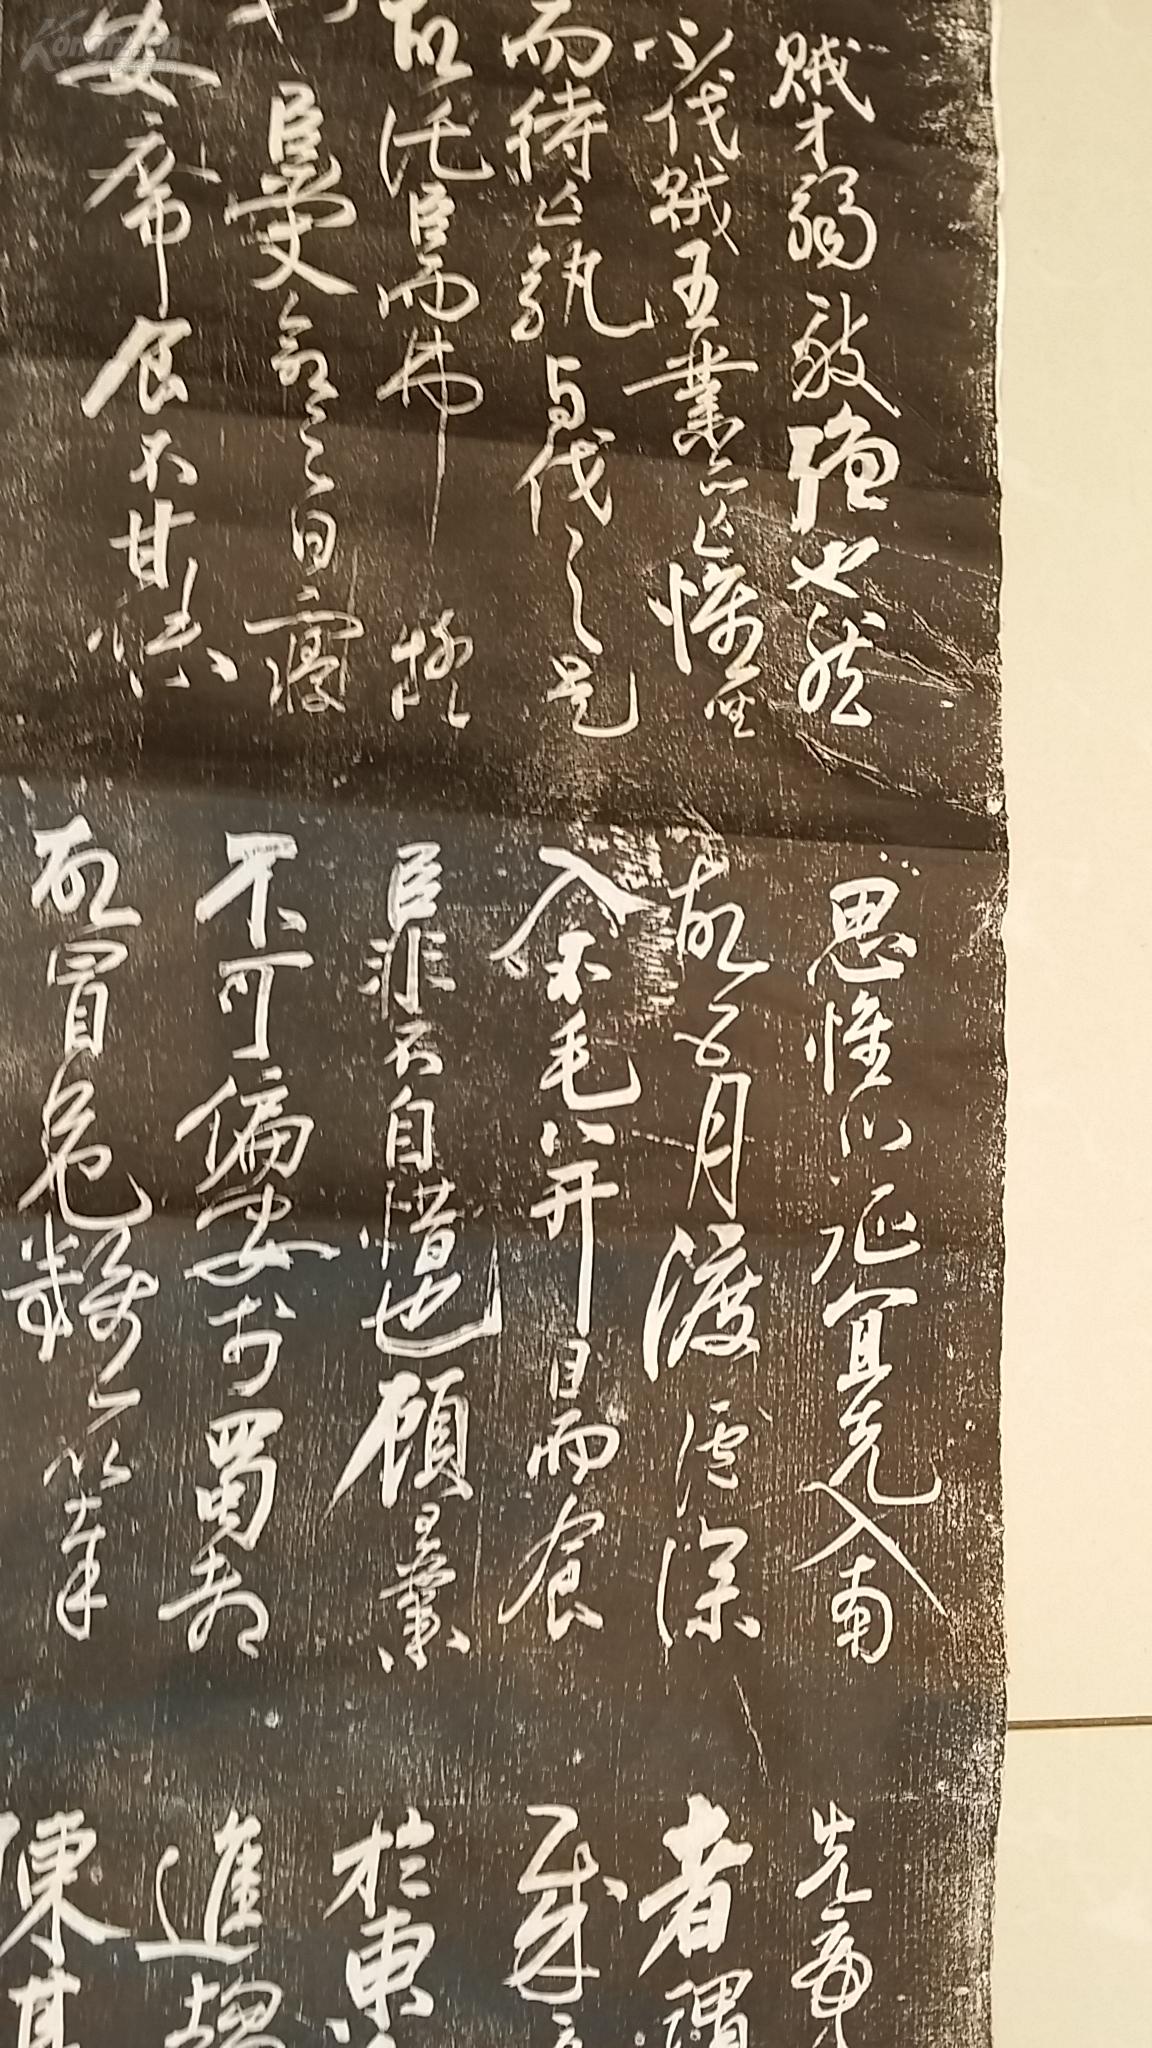 賊才弱敵強也然
不伐賊王業亦亡惟坐
而待亡孰與伐之是
故託臣而弗疑
臣受命之日寢
安席食不甘味
思惟北征宜先入南
故五月渡瀘深
入不毛并日而食
臣非不自惜也顧王業
不可偏安於蜀都
故冒危難以奉
先帝
者謂
於東
進趨
陳其